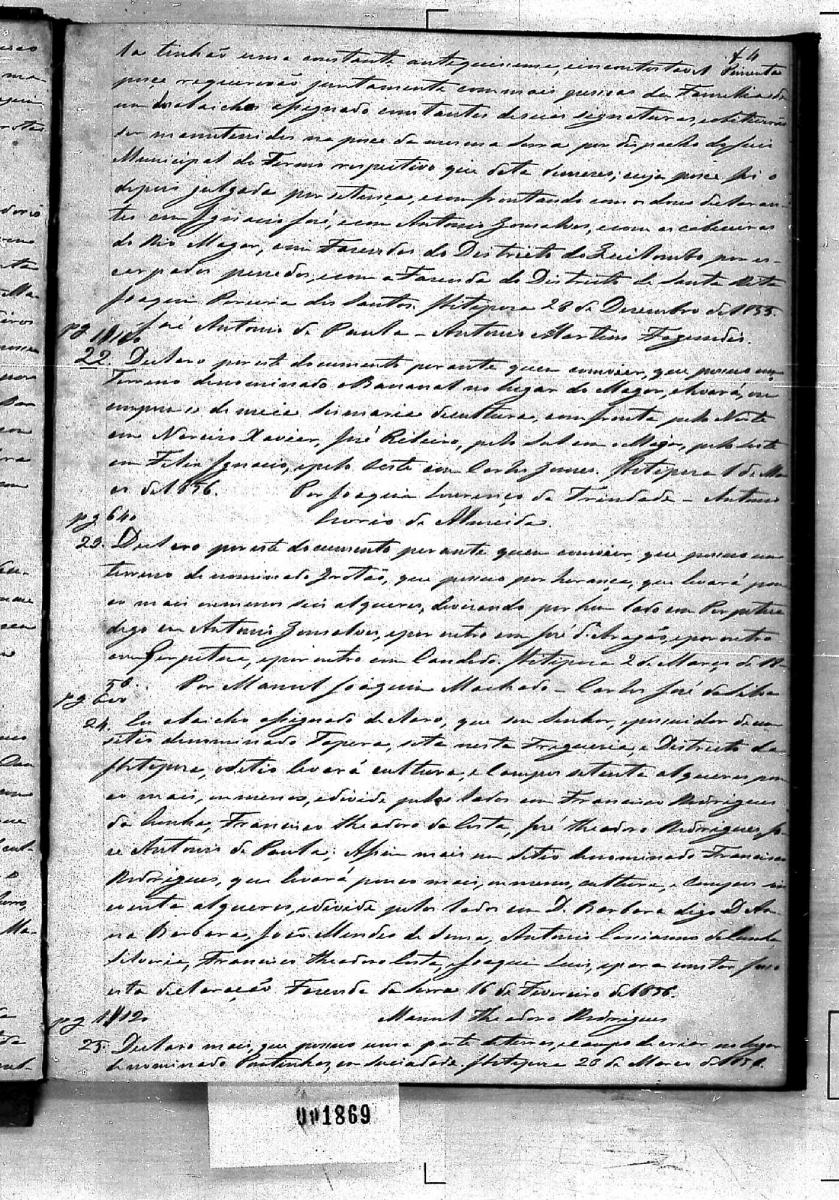 44
Pimenta
la tinhão uma constante antequissima, encontestavel
posse requererão juntamente com mais pessoas da Familia
abaicho assignado constantes de suas signaturas, e obtiverão
ser manutenidos na posse da mesma terra por despacho do Juis
Municipal do Termo respectivo que data, cuja posse foi
depois julgada por setença, e comfrontando com o dous declaran-
tes em Ignacio José, e com Antonio Gonsalves, e com as cabeceiras
do Rio Magor, e em Fazendas do Districto do Quilombo por es-
carpados penedos, e com a Fazenda do Districto de Santa Rita
Joaquim Pereira dos Santos. Ibitipoca 28 de Dezembro de 1855.
José Antonio de Paula - Antonio Martins Fagundes.
pg 1$120
22. Declaro por este documento perante quem convier, que possuo um
Terreno denominado o Bananal no lugar do Magor, e levará, ou
compoe-se de meia sismaria de cultura, comfronta pelo Norte
em Xavier, José Ribeiro, pelo Sul em o Magor, pelo Leste
em Felis Ignacio, e pelo Oeste em Carlos Gomes. Ibitipoca 1 de Mar-
ço de 1856. Por Joaquim Lourenço da Trindade - Antonio
de Almeida.
pg 640
23. Declaro por este documento perante quem convier, que possuo um
terreno denominado Grotão, que possuo por herança, que levará pou-
co mais ou menos seis alqueres, divisando por hum lado em Perpetua
digo em Antonio Gonsalves, e por outro em José de Aragão, e por outro
em Perpetua, e por outro em Candido. Ibitipoca 2 de Março de 18-
56. Por Manoel Joaquim Machado - Carlos José da Silva
pg 600
24. Eu abaicho assignado declaro, que sou Senhor, e possuidor de um
sitio denominado Tapera, sito nesta Freguesia, e Districto da
Ibitipoca, o sitio levará cultura, e Campos setenta alqueres pou-
co mais, ou menos, e divide pelos lados em Francisco Rodrigues
da Cunha, Francisco Theodoro da Costa, José Theodoro Rodrigues, Jo-
se Antonio de Paula; Assim mais um sitio denominado Francisco
Rodrigues, que levará pouco mais, ou menos, cultura, e Campos sin-
coenta alqueres, e divide pelos lados em D. Barbara digo D. An-
na Barbara, João Mendes de Sousa, Antonio Cassianno da Cunha
Silveria, Francisco Theodoro Costa, Joaquim Luis, e para constar fasso
esta declaração Fazenda da Serra 16 de Fevereiro de 1856.
Manoel Theodoro Rodrigues
pg 1$120
25. Declaro mais, que possuo uma parte de terras, e campo de criar no lugar
denominado Pontinhas, em sociadade, Ibitipoca 20 de Março de 1856.
001869